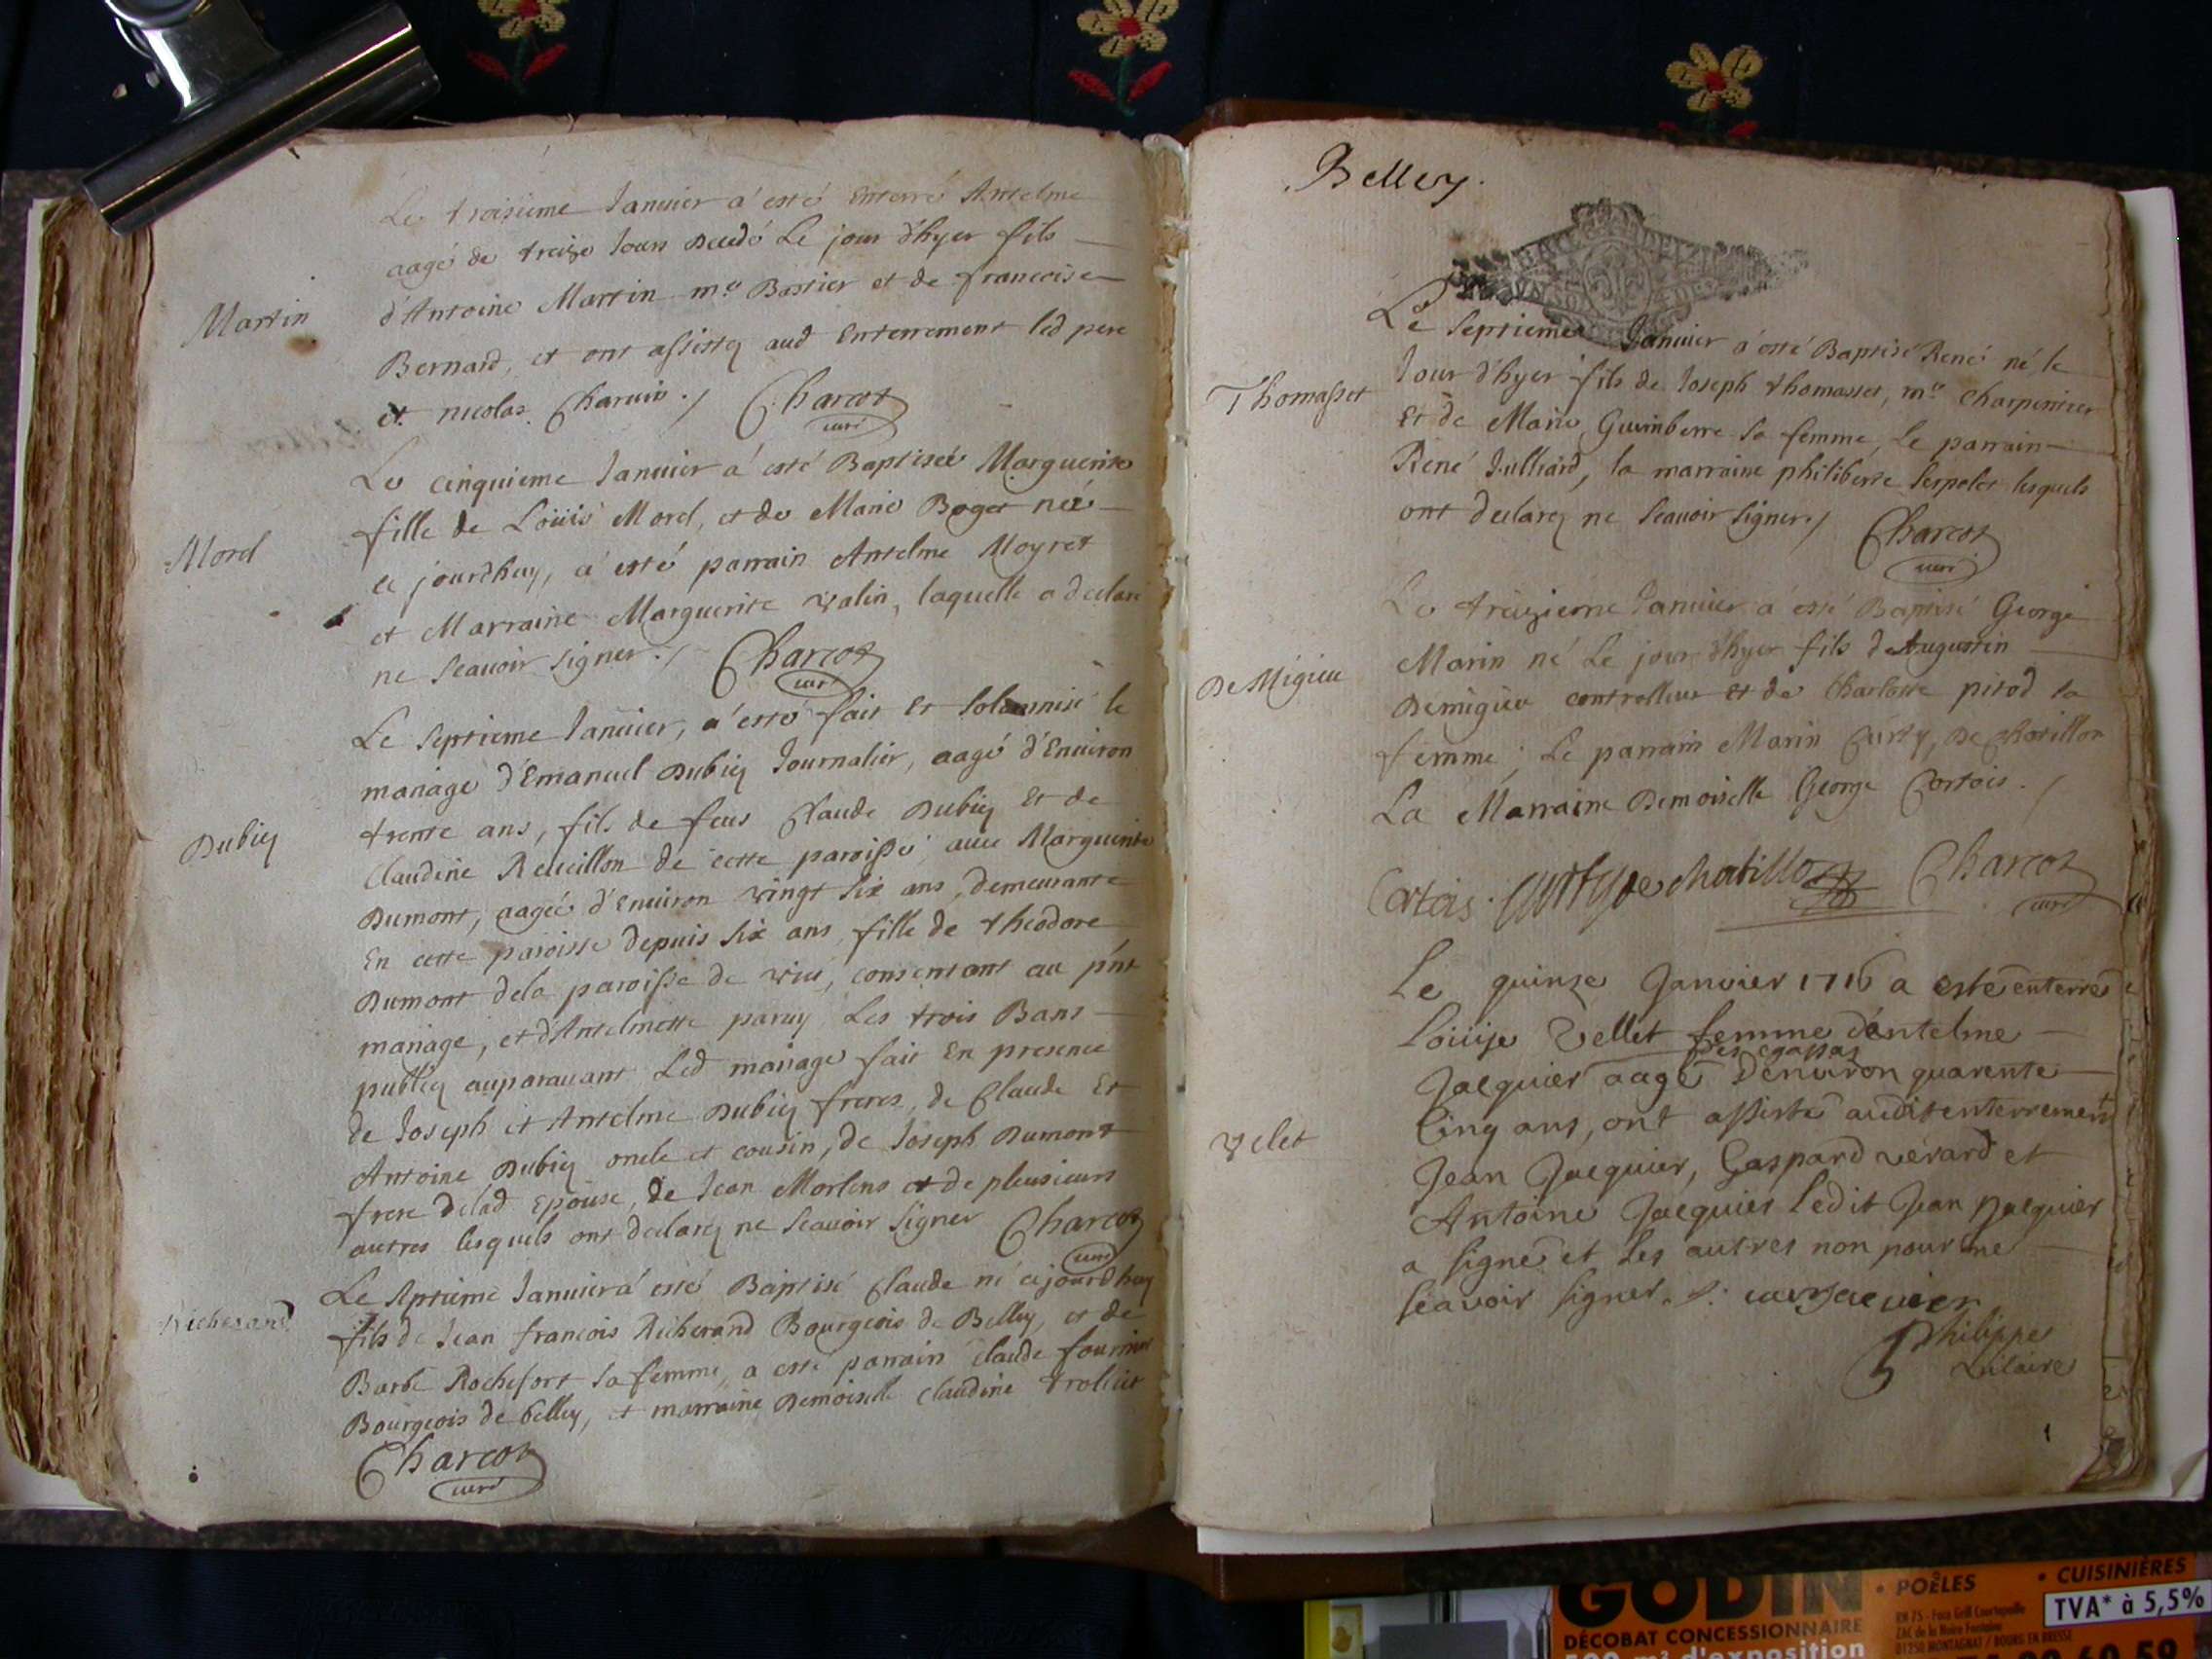 Le troisieme Januier a esté Enterré Antelme
aagé de treize Jours decedé Le jour d'hyer fils
Martin
d'Antoine Martin mre Bastier et de francoise
Bernard, et ont assistez aud Enterrement led pere
et nicolas Charuin ./ Charcot
curé
Le cinquieme Januier a esté Baptiseé Marguerite
fille de Loüis Morel, et de Marie Boget neé
Morel
ce jourdhuy, a esté parrain Antelme Moyret
et Marraine Marguerite valin, laquelle a declaré
ne scauoir signer ./ Charcot
curé
Le septieme Januier, a esté fait et solemnisé le
mariage d'Emanuel Dubiez Journalier, aagé d'Enuiron
trente ans, fils de feus Claude Dubiez et de
Dubiez
Claudine Reueillon de cette paroisse, auec Marguerite
Dumont, aageé d'Enuiron vingt six ans, demeurante
En cette paroisse depuis six ans, fille de theodore
Dumont dela paroisse de consentant au pnt
mariage, et d'Antelmette paruy Les trois Bans
publiez auparauant Led mariage fait En presence
de Joseph et Antelme Dubiez freres, de Claude Et
Antoine Dubiez oncle et cousin, de Joseph Dumont
frere delad Epouse, de Jean et de plusieurs
autres lesquels ont declarez ne scauoir signer Charcot
curé
Le septieme Januier a esté Baptisé Claude né cejourdhuy
Richerand
fils de Jean francois Richerand Bourgeois de Belley, et de
Barbe Rochefort sa femme, a esté parrain Claude fournier
Bourgeois de belley, et marraine Demoiselle Claudine trolliet
Charcot
curé
Belley.
Le septieme Januier a esté Baptisé René né le
Thomasset
Jour d'hyer fils de Joseph thomasset, mre charpentier
Et de Marie Guinberre sa femme, Le parrain
René Julliard, la marraine philiberte serpolet lesquels
ont declarez ne scauoir signer ./ Charcot
curé
Le treizieme Januier a esté Baptisé George
Marin né Le jour d'hyer fils de Augustin
De Migieu
Demigieu controlleur et de Charlotte pitod sa
femme, Le parrain Marin Curty, De Chatillon
La Marraine Demoiselle George Cortois ./
Cortois. Curty de chatillon Charcot
curé
Le quinze Janvier 1716 a esté enterré
Loüise Vellet femme d'antelme
Jacquier aagé d'enuiron quarente
Cinq ans, ont assisté audit enterrement
Velet
Jean Jacquier, Gaspard verard et
Antoine Jacquier ledit Jean Jacquier
a signé et les autres non pour ne
scavoir signer
Philippe
Lulaire
GODIN
• POÊLES
• CUISINIÈRES
TVA* à 5,5%
DÉCOBAT CONCESSIONNAIRE
ZAC de la Noire Fontaine
01250 MONTAGNAT / BOURG EN BRESSE
500 m² d'exposition